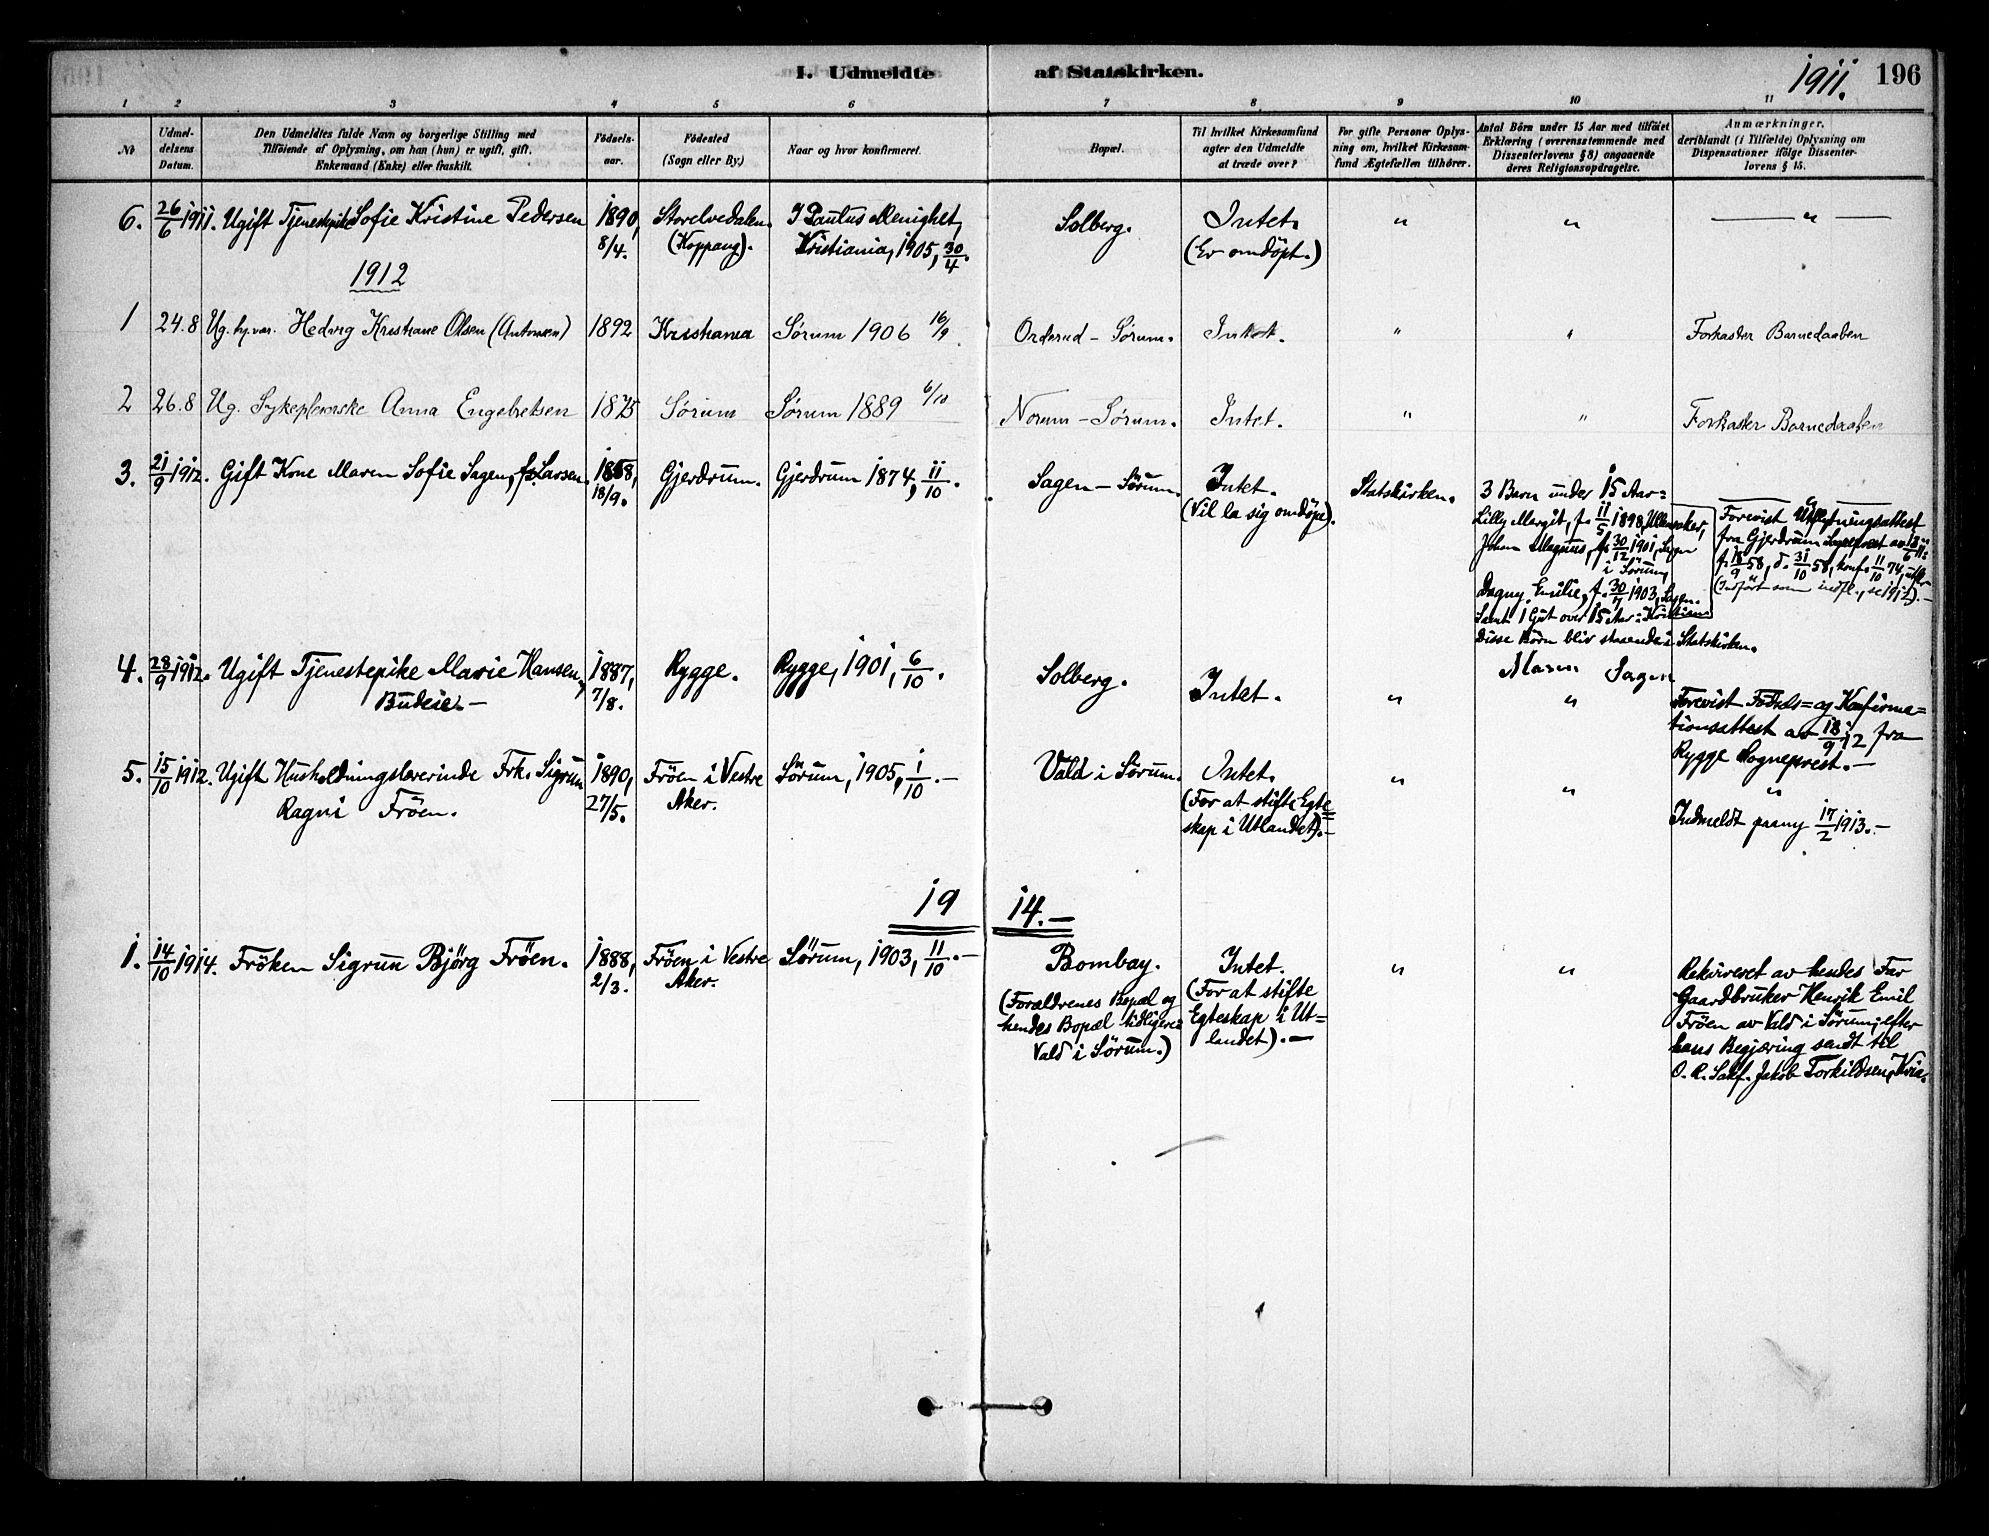 I. Udmeldte af Statskirken.
1911. 196
1 2 3 4 5 6 7 8 9 10 11
No
Udmel-
delsens
Datum.
Den Udmeldtes fulde Navn og borgerlige Stilling med
Tilføiende af Oplysning, om han (hun) er ugift, gift,
Enkemand (Enke) eller fraskilt.
Fødsels-
aar.
Fødested
(Sogn eller By.)
Naar og hvor konfirmeret.
Bopæl.
Til hvilket Kirkesamfund
agter den Udmeldte
at træde over?
For gifte Personer Oplys-
ning om, hvilket Kirkesam-
fund Ægtefællen tilhører.
Antal Børn under 15 Aar med tilføiet
Erklæring (overensstemmende med
Dissenterlovens § 8) angaaende
deres Religionsopdragelse.
Anmærkninger,
deriblandt (i Tilfælde) Oplysning om
Dispensationer ifølge Dissenter-
lovens § 15.
6. 26/6 1911. Ugift Tjenestpike Sofie Kristine Pedersen
1890,
8/4.
Storelvedalen
(Koppang).
I Paulus Menighet,
Kristiania, 1905, 30/4.
Solberg.
Intet.
(Er omdöpt.)
" " "
1912
1 24.8 Ug. hj.var. Hedvig Kristiane Olsen (Antonsen) 1892 Kristiania Sørum 1906 16/9 Orderud - Sørum. Intet. " " Forkaster Barnedaaben
2 26.8 Ug. Sykepleierske Anna Engebretsen 1875 Sørum Sørum 1889 6/10 Norum - Sørum. Intet. " " Forkaster Barnedaaben
3. 21/9 1912. Gift Kone Maren Sofie Sagen, f. Larsen.
1858,
18/9.
Gjerdrum. Gjerdrum 1874, 11/10. Sagen - Sörum.
Intet.
(Vil la sig omdöpe).
Statskirken.
3 Barn under 15 Aar:
Lilly Margit, f. 11/5 1898, Ullensaker,
Johan Magnus, f. 30/12 1901, Sagen
i Sörum,
Dagny Emilie, f. 30/7 1903, Sagen.
Samt 1 Gut over 15 Aar: Kristian
Disse Börn blir staaende i Statskirken.
Maren Sagen
"
Forevist Utflytningsattest
fra Gjerdrum Sogneprest av 18/6 11:
f. 18/9 58, d. 31/10 58, konf. 11/10 74,
(Indført som indfl., se 1912).-
4. 28/9 1912. Ugift Tjenestepike Marie Hansen,
Budeie.-
1887,
7/8.
Rygge. Rygge, 1901, 6/10. Solberg. Intet. " "
Forevist Födsels= og Konfirma=
tionsattest av 18/9 12 fra
Rygge Sogneprest.-
5. 15/10 1912. Ugift Husholdningslærerinde Frk. Sigrun
Ragni Fröen.
1890,
27/5.
Fröen i Vestre
Aker.
Sörum, 1905, 1/10.- Vald i Sörum.
Intet.
(For at stifte Egte=
skap i Utlandet).-
" " "
Indmeldt paany 17/2 1913.-
1914.-
1. 14/10 1914. Fröken Sigrun Bjørg Fröen.
1888,
2/3.
Fröen i Vestre
Aker.
Sörum, 1903, 11/10.-
Bombay.
(Forældrenes Bopæl og
hendes Bopæl tidligere:
Vald i Sörum.)
Intet.
(For at stifte
Egteskap i Ut=
landet).-
" "
Rekvireret av hendes Far
Gaardbruker Henrik Emil
Fröen av Vald i Sörum; efter
hans Begjæring sendt til
O. R. Sakf. Jakob Torkildsen, Kria.